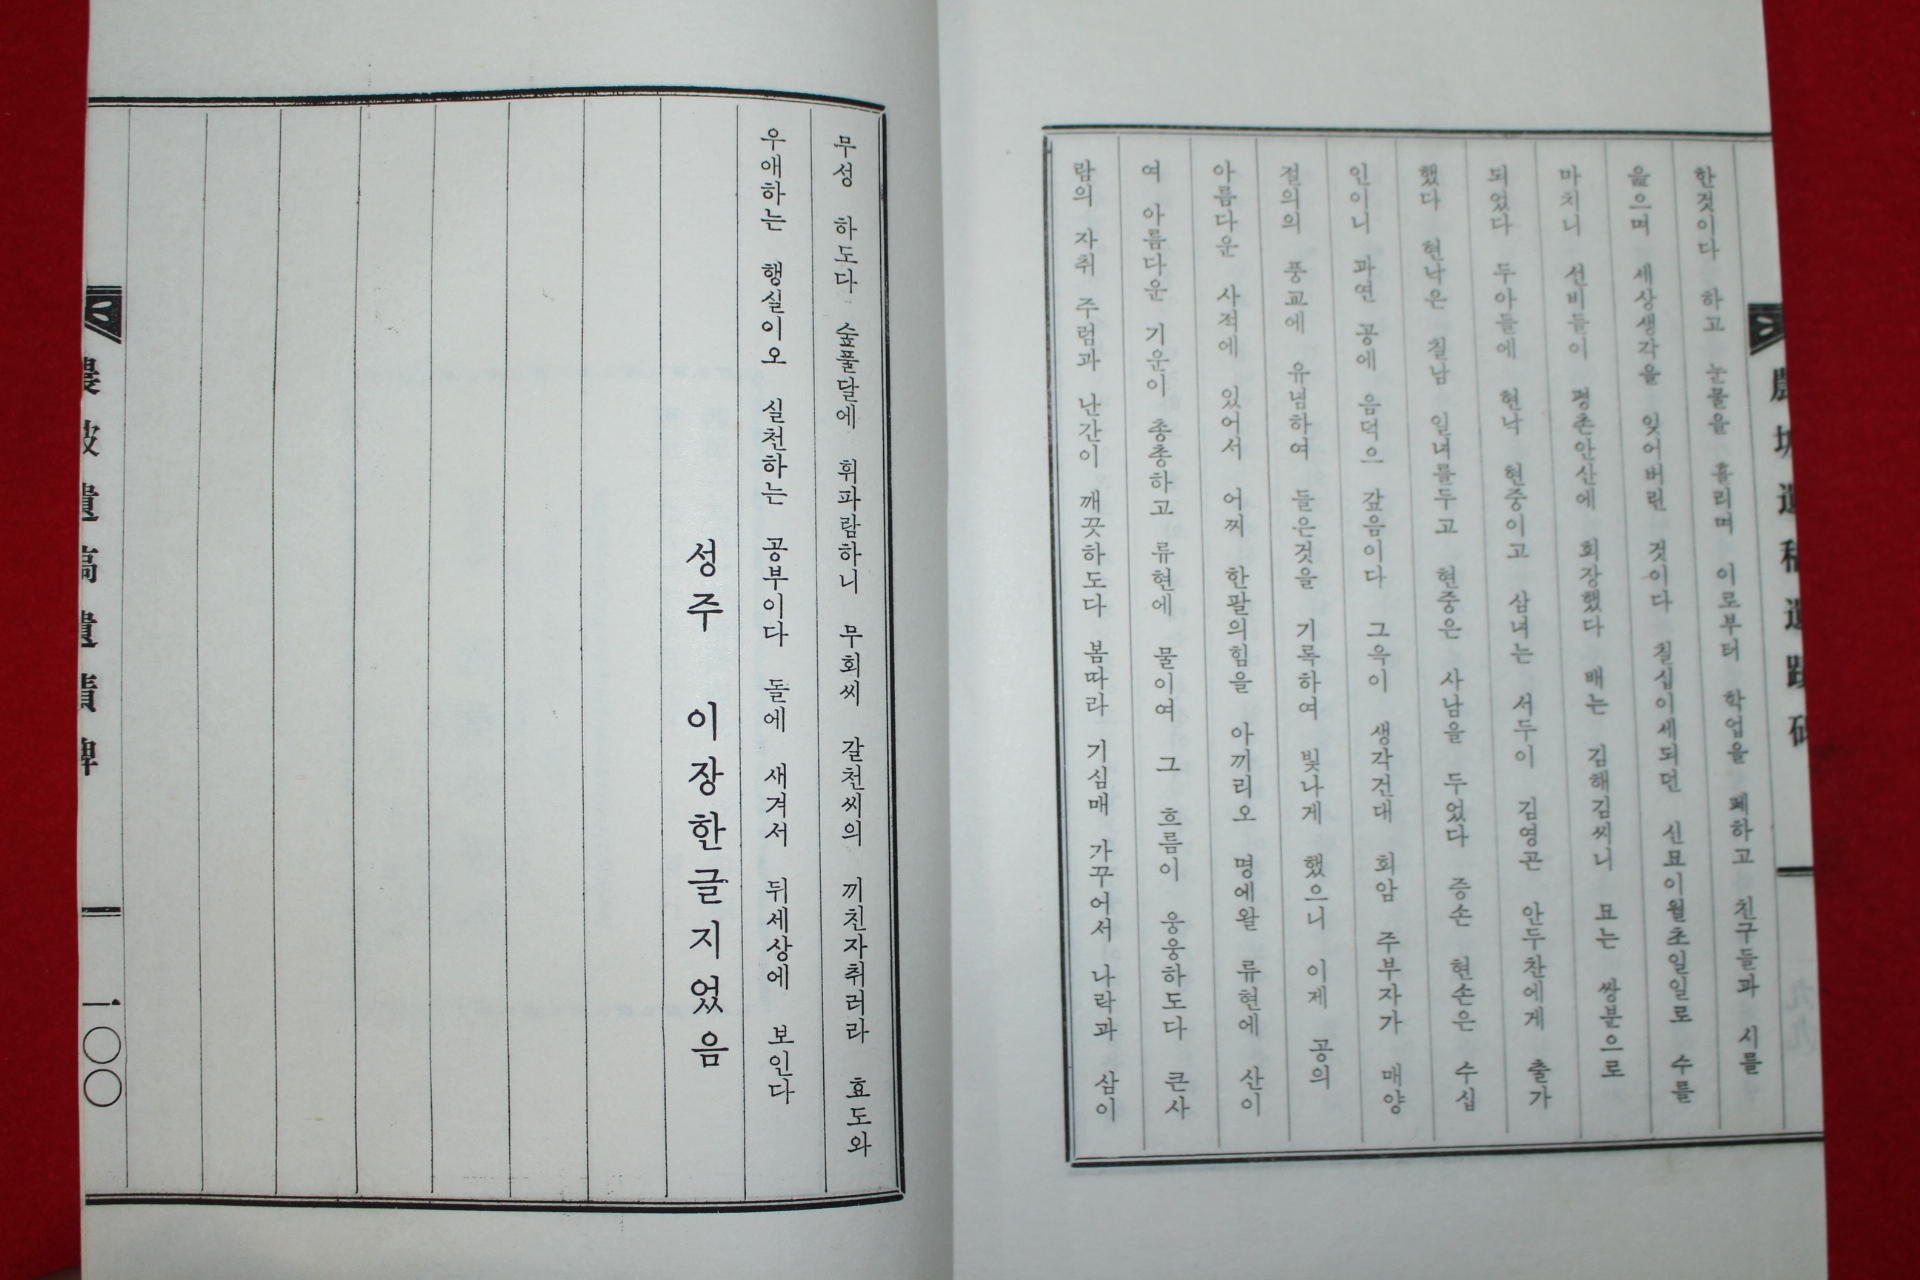 한것이다 하고 눈물을 흘리며 이로부터 학업을 폐하고 친구들과 시를
을으며 세상생각을 잊어버린 것이다 칠십이세되던 신묘이월초일일로 수를
마치니 선비들이 평촌안산에 회장했다 배는 김해김씨니 묘는 쌍분으로
되었다 두아들에 현낙 현중이고 삼녀는 서두이 김영곤 안두찬에게 출가
했다 현낙은 칠남 일녀를두고 현중은 사남을 두었다 증손 현손은 수십
인이니 과연 공에 음덕으 갚음이다 그윽이 생각건대 회암 주부자가 매양
절의의 풍교에 유념하여 들은것을 기록하여 빛나게 했으니 이제 공의
아름다운 사적에 있어서 어찌 한팔의힘을 아끼리오 명에왈 류현에 산이
여 아름다운 기운이 총총하고 류현에 물이여 그 흐름이 웅웅하도다 큰사
람의 자취 주럼과 난간이 깨끗하도다 봄따라 기심매 가꾸어서 나락과 삼이
무성 하도다 숲풀달에 휘파람하니 무회씨 갈천씨의 끼친자취러라 효도와
우애하는 행실이오 실천하는 공부이다 돌에 새겨서 뒤세상에 보인다
성주 이장한글지었음
遺稿遺蹟碑
一〇〇